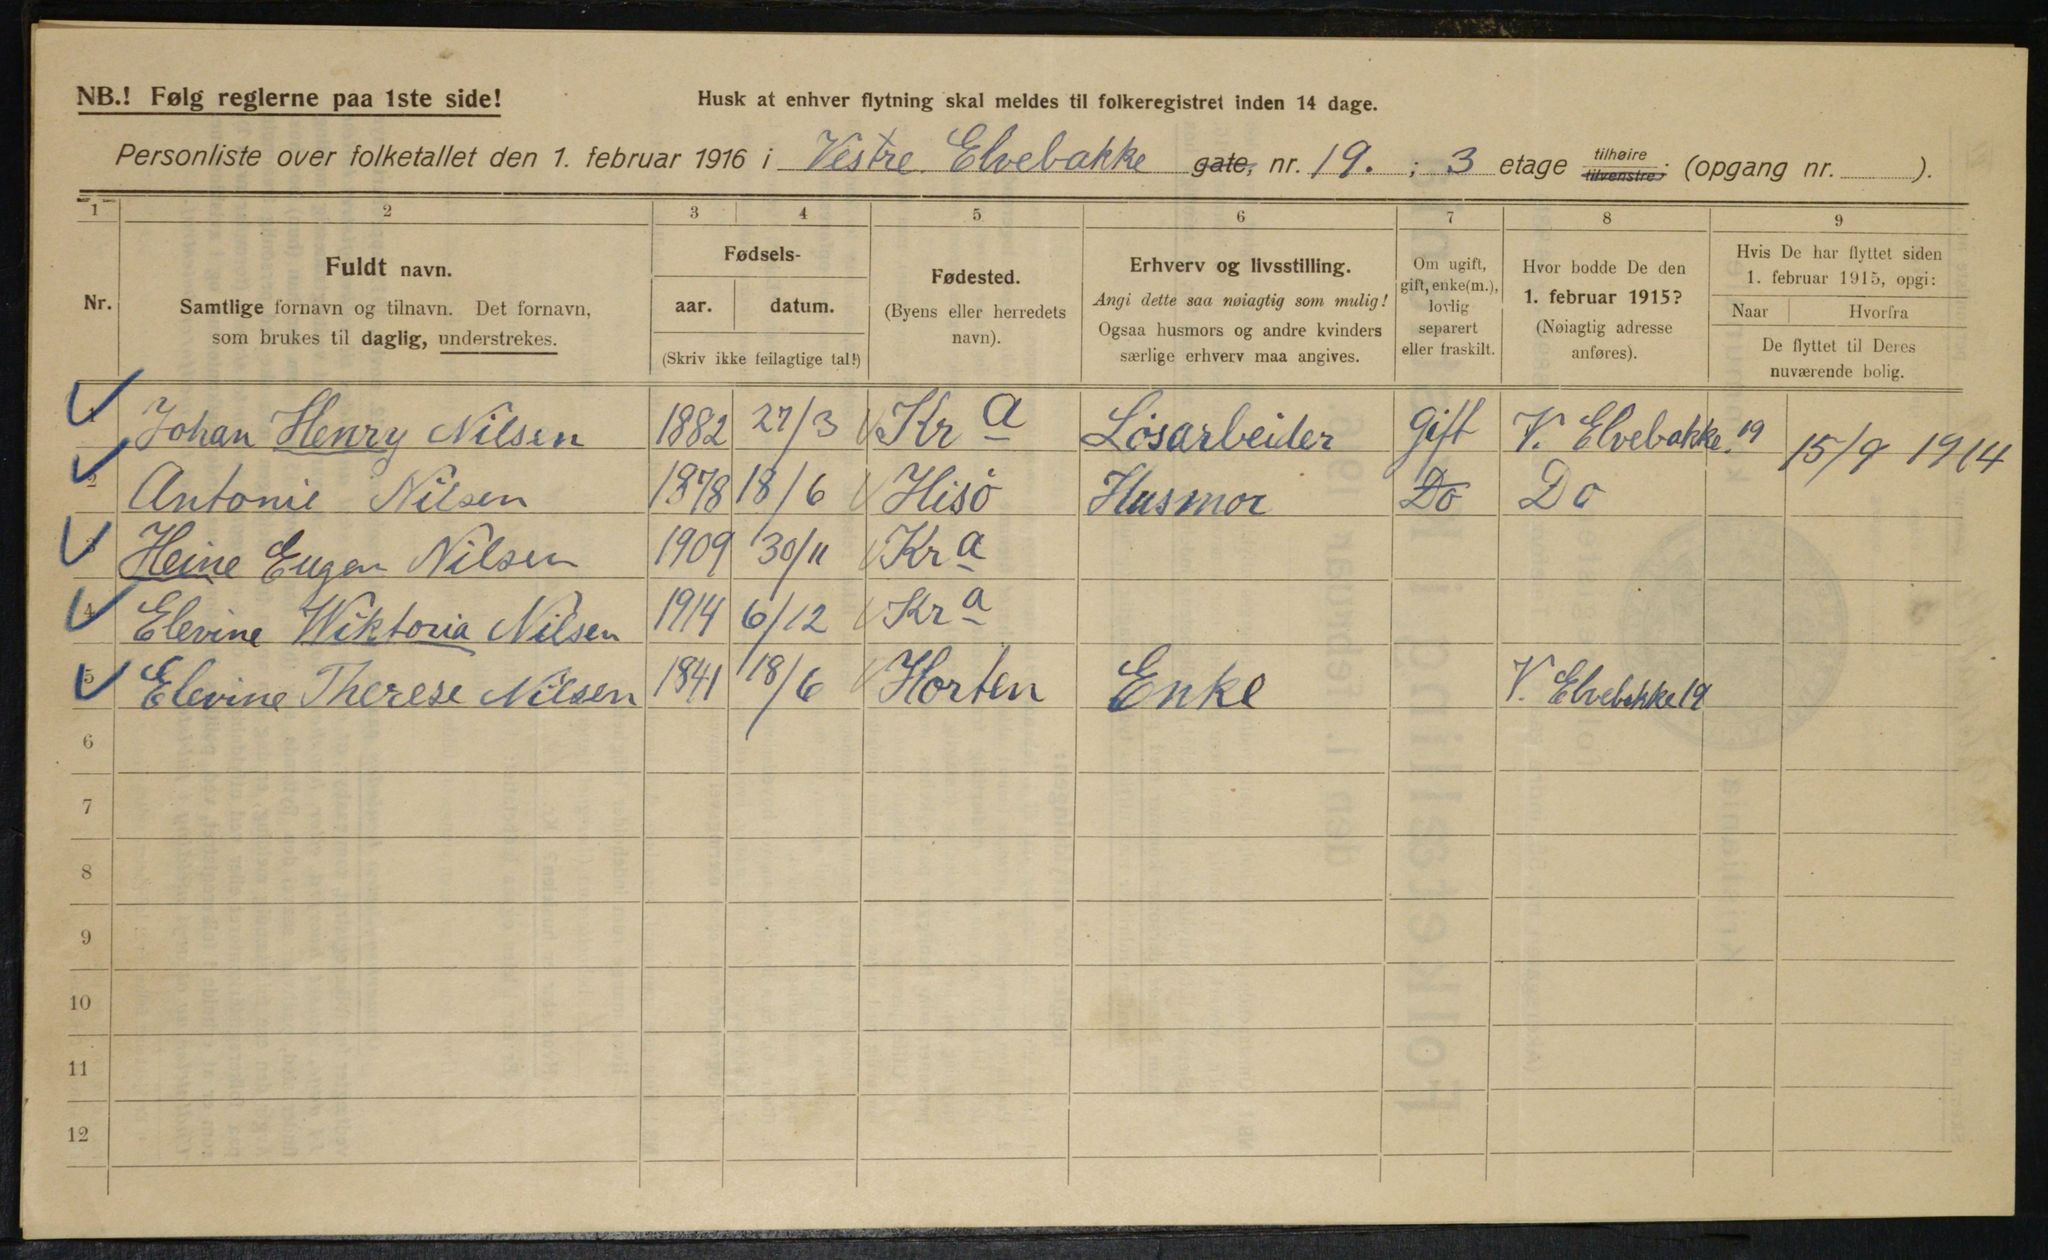 NB.! Følg reglerne paa 1ste side!
Husk at enhver flytning skal meldes til folkeregistret inden 14 dage.
Personliste over folketallet den 1. februar 1916 i Vestre Elvebakke gate, nr. 19. ; 3 etage tilhøire tilvenstre; (opgang nr. ).
1 2 3 4 5 6 7 8 9
Nr.
Fuldt navn.
Samtlige fornavn og tilnavn. Det fornavn,
som brukes til daglig, understrekes.
Fødsels-
aar. datum.
(Skriv ikke feilagtige tal!)
Fødested.
(Byens eller herredets
navn).
Erhverv og livsstilling.
Angi dette saa nøiagtig som mulig!
Ogsaa husmors og andre kvinders
særlige erhverv maa angives.
Om ugift,
gift, enke(m.),
lovlig
separert
eller fraskilt.
Hvor bodde De den
1. februar 1915?
(Nøiagtig adresse
anføres).
Hvis De har flyttet siden
1. februar 1915, opgi:
Naar Hvorfra
De flyttet til Deres
nuværende bolig.
1 Johan Henry Nilsen 1882 27/3 Kra Løsarbeider Gift V. Elvebakke. 19 15/9 1914
2 Antonie Nilsen 1878 18/6 Hisö Husmor Do Do
3 Heine Eugen Nilsen 1909 30/11 Kra
4 Elevine Wiktoria Nilsen 1914 6/12 Kra
5 Elevine Therese Nilsen 1841 18/6 Horten Enke V. Elvebakke 19
6
7
8
9
10
11
12